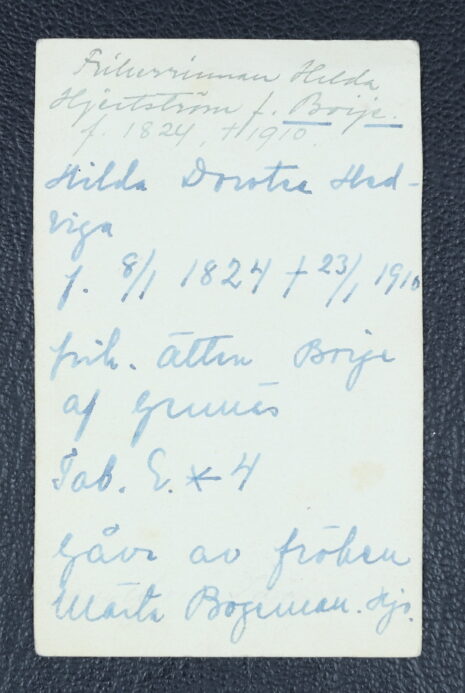 Friherrinnan Hilda
Hjertström f. Boije.
f. 1824, † 1910.
Hilda Dorotea Hed-
viga
f. 8/1 1824 † 23/1 1910
frih. ätten Boije
af Gennäs
Tab. 4
Gåva av fröken
Märta Bogeman.